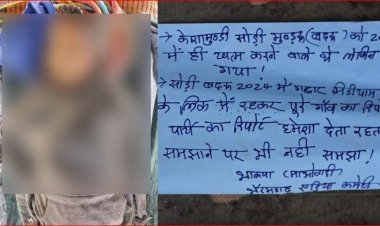 → केशामुण्डी सोड़ी मुण्ड्रु (बदरु) को 20
में ही खत्म करने वाले थे लेकिन
गया!
→ सोड़ी बदरु 2024 में गद्दार मिडीयाम
के लिंक में रहकर पुरे गाँव का रिप
पार्टी का रिपोर्ट हमेशा देता रहत
समझाने पर भी नही समझा!
भाकपा (माओवादी)
भैरमगढ़ एरिया कमेटी